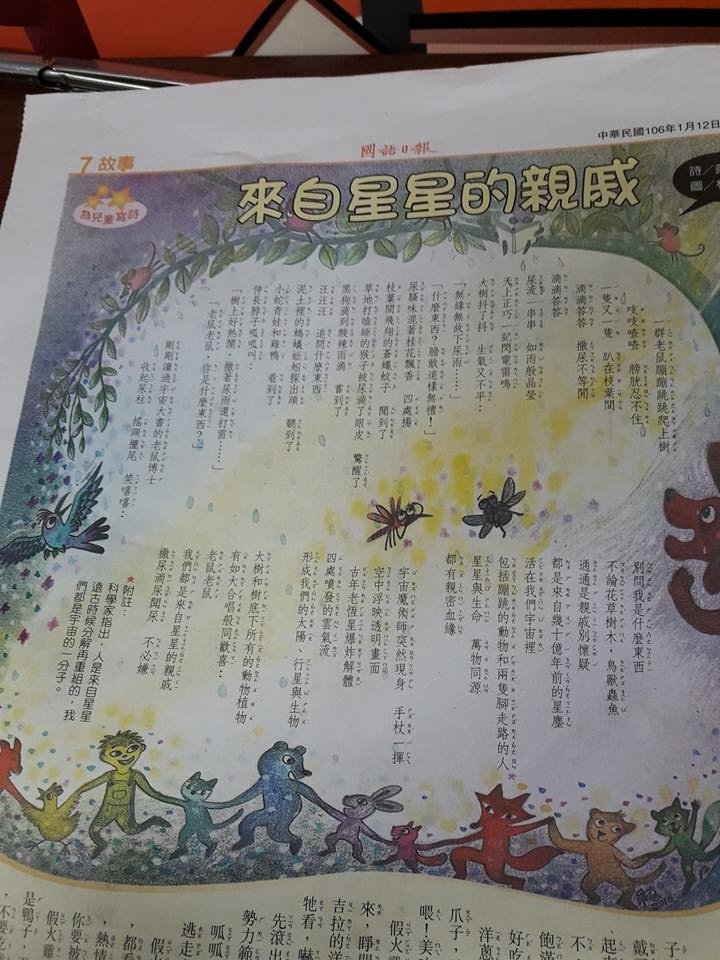 7 故事
國語日報
中華民國106年1月12日
為兒童寫詩
來自星星的親戚
詩／
圖／
一群老鼠蹦蹦跳跳爬上樹
吱吱喳喳　膀胱忍不住
一隻又一隻　趴在枝葉間
滴滴答答　撒尿不等閒
滴滴答答
尿流一串串　如雨般晶瑩
天上正巧一記閃電雷鳴
大樹抖了抖　生氣又不平：
「無緣無故下尿雨……」
「什麼東西？膽敢這樣無禮！」
尿騷味混著桂花飄香　四處揚
枝葉間飛翔的蒼蠅蚊子　聞到了
草地打瞌睡的猴子被尿滴了眼皮　驚醒了
黑狗滴到酸辣雨滴　嘗到了
汪汪汪　追問什麼東西
泥土裡的螞蟻蚯蚓探出頭　聽到了
小蛇青蛙和雞鴨　看到了
伸長脖子呱呱叫：
「樹上好熱鬧，撒著尿雨還打雷……」
「老鼠老鼠，你是什麼東西？」
剛剛讀過宇宙大書的老鼠博士
收起尿柱　搖頭擺尾　笑嘻嘻：
別問我是什麼東西
不論花草樹木，鳥獸蟲魚
通通是親戚別懷疑
都是來自幾十億年前的星塵
活在我們宇宙裡
包括蹦跳的動物和兩隻腳走路的人
星星與生命　萬物同源
都有親密血緣
宇宙魔術師突然現身　手杖一揮
空中浮映透明畫面
古年老恆星爆炸解體
四處噴發的雲氣流
形成我們的太陽、行星與生物
大樹和樹底下所有的動物植物
有如大合唱般同歡喜：
老鼠老鼠
我們都是來自星星的親戚
撒尿滴尿聞尿　不必嫌
★附註：
科學家指出，人是來自星星
遠古時候分解再重組的，我
們都是宇宙的一分子。
起來
飽滿
好吃
洋蔥
爪子，
喂！美
假火
來，睜開
吉拉的洋
牠看，嚇
先滾出
勢力範
呱呱
逃走
假火
，都看
，熱情
你要被
假火雞
是鴨子，